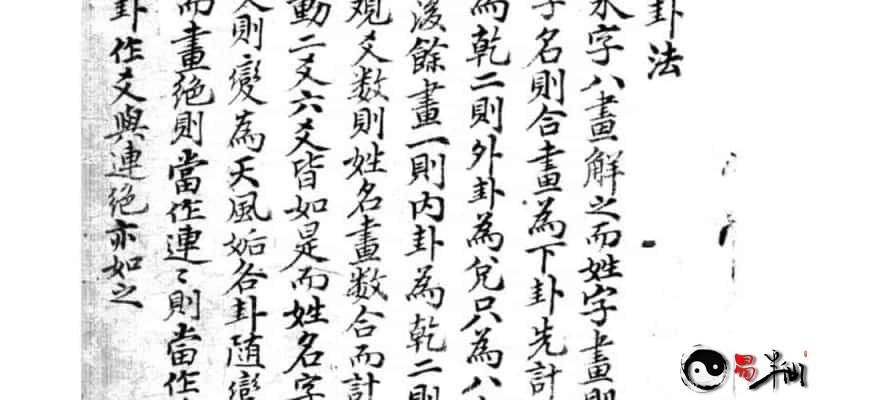 卦法
字八畫解之而姓字畫則
字名則合畫為下卦先計
為乾二則外卦為兌只為八
後餘畫一則內卦為乾二則
觀爻數則姓名畫數合而計
動二爻六爻皆如是而姓名字
則變為天風姤各卦隨變
而畫絕則當作連〻則當作
卦作爻與連絕亦如之
易半仙